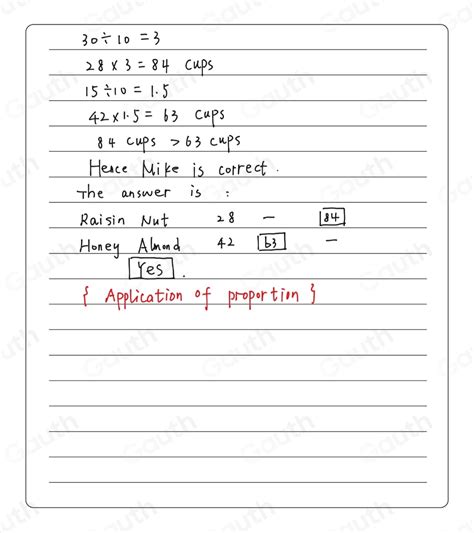 30÷10 = 3
28 × 3 = 84 cups
15÷10 = 1.5
42×1.5 = 63 cups
84 cups > 63 cups
Hence Mike is correct.
The answer is :
Raisin Nut 28 — 84
Honey Almond 42 63 —
Yes .
{ Application of proportion }
Gauth